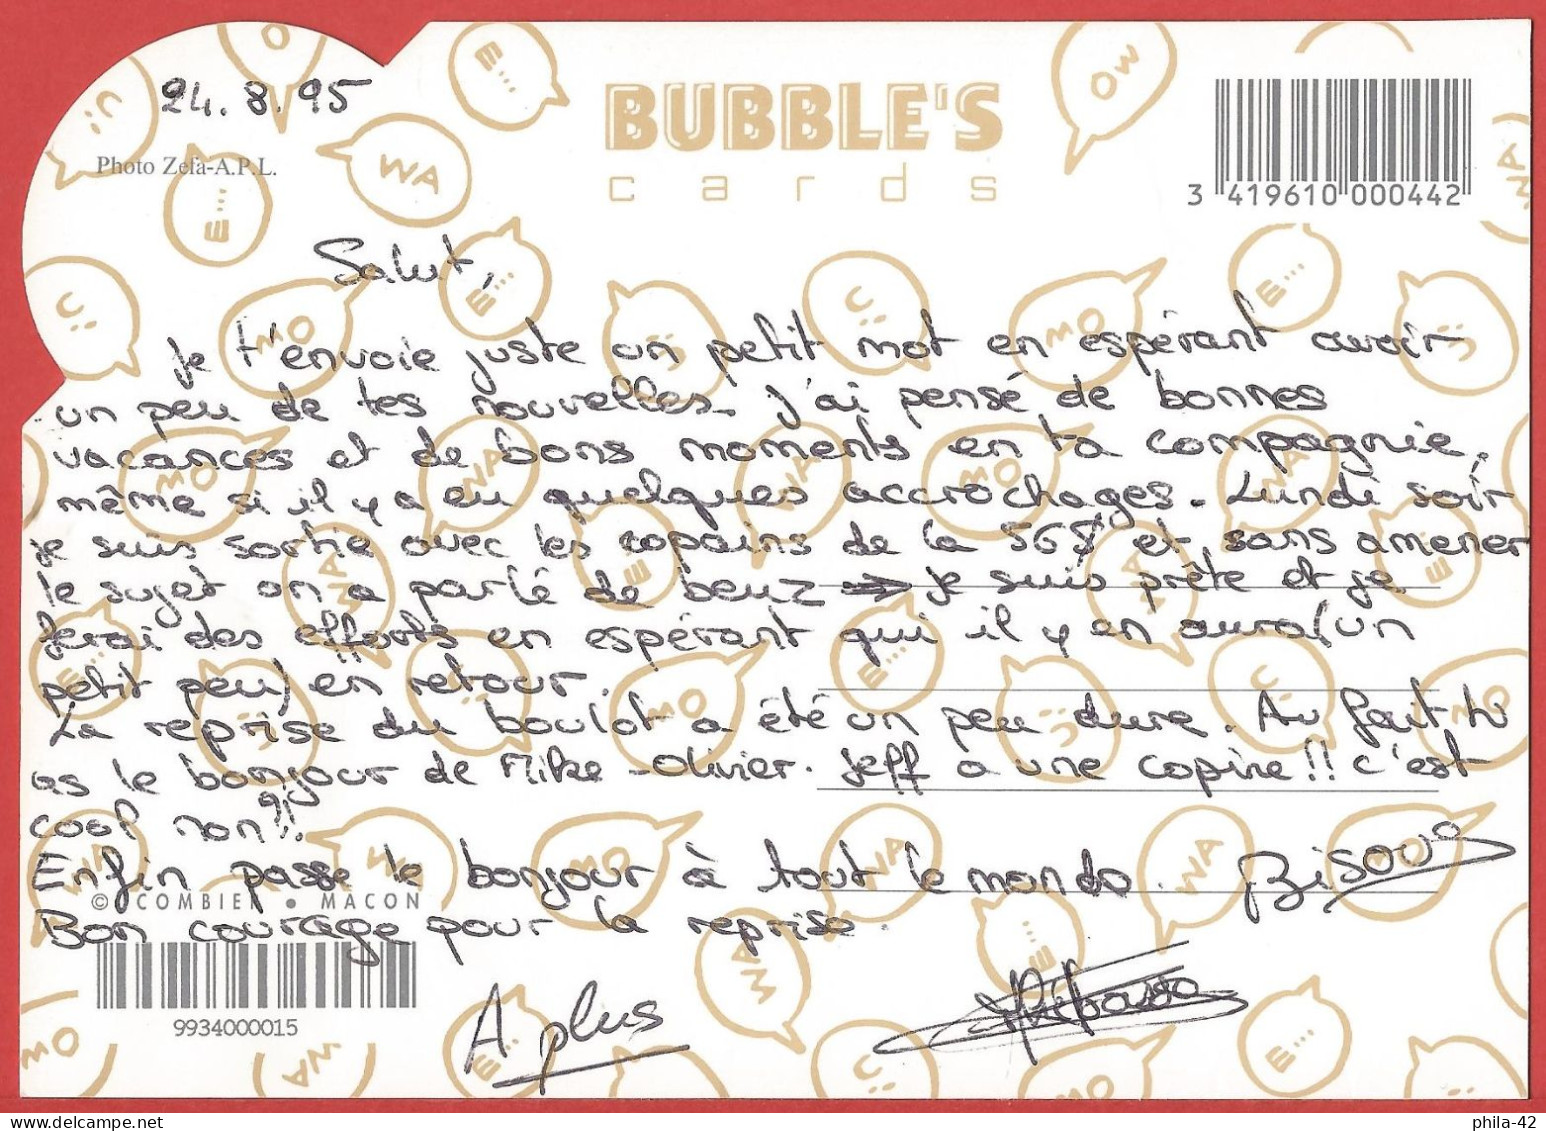 24.8.95
BUBBLE'S
cards
Photo Zefa-A.P.L.
3 419610 000442
Salut,
Je t'envoie juste un petit mot en espérant avoir
un peu de tes nouvelles. J'ai pensé de bonnes
vacances et de bons moments en ta compagnie,
même si il y a eu quelques accrochages. Lundi soir
je suis sortie avec les copains de la et sans amener
le sujet on a parlé de → Je suis prête et je
ferai des efforts en espérant qui il y en aura (un
petit peu) en retour.
La reprise du boulot a été un peu dure. Au fait tu
as le bonjour de Mike - Olivier. Jeff a une copine!! c'est
cool non?!
Enfin passe le bonjour à tout le monde. Bisous
© COMBIER • MACON
Bon courage pour la reprise.
9934000015
A plus
phila-42